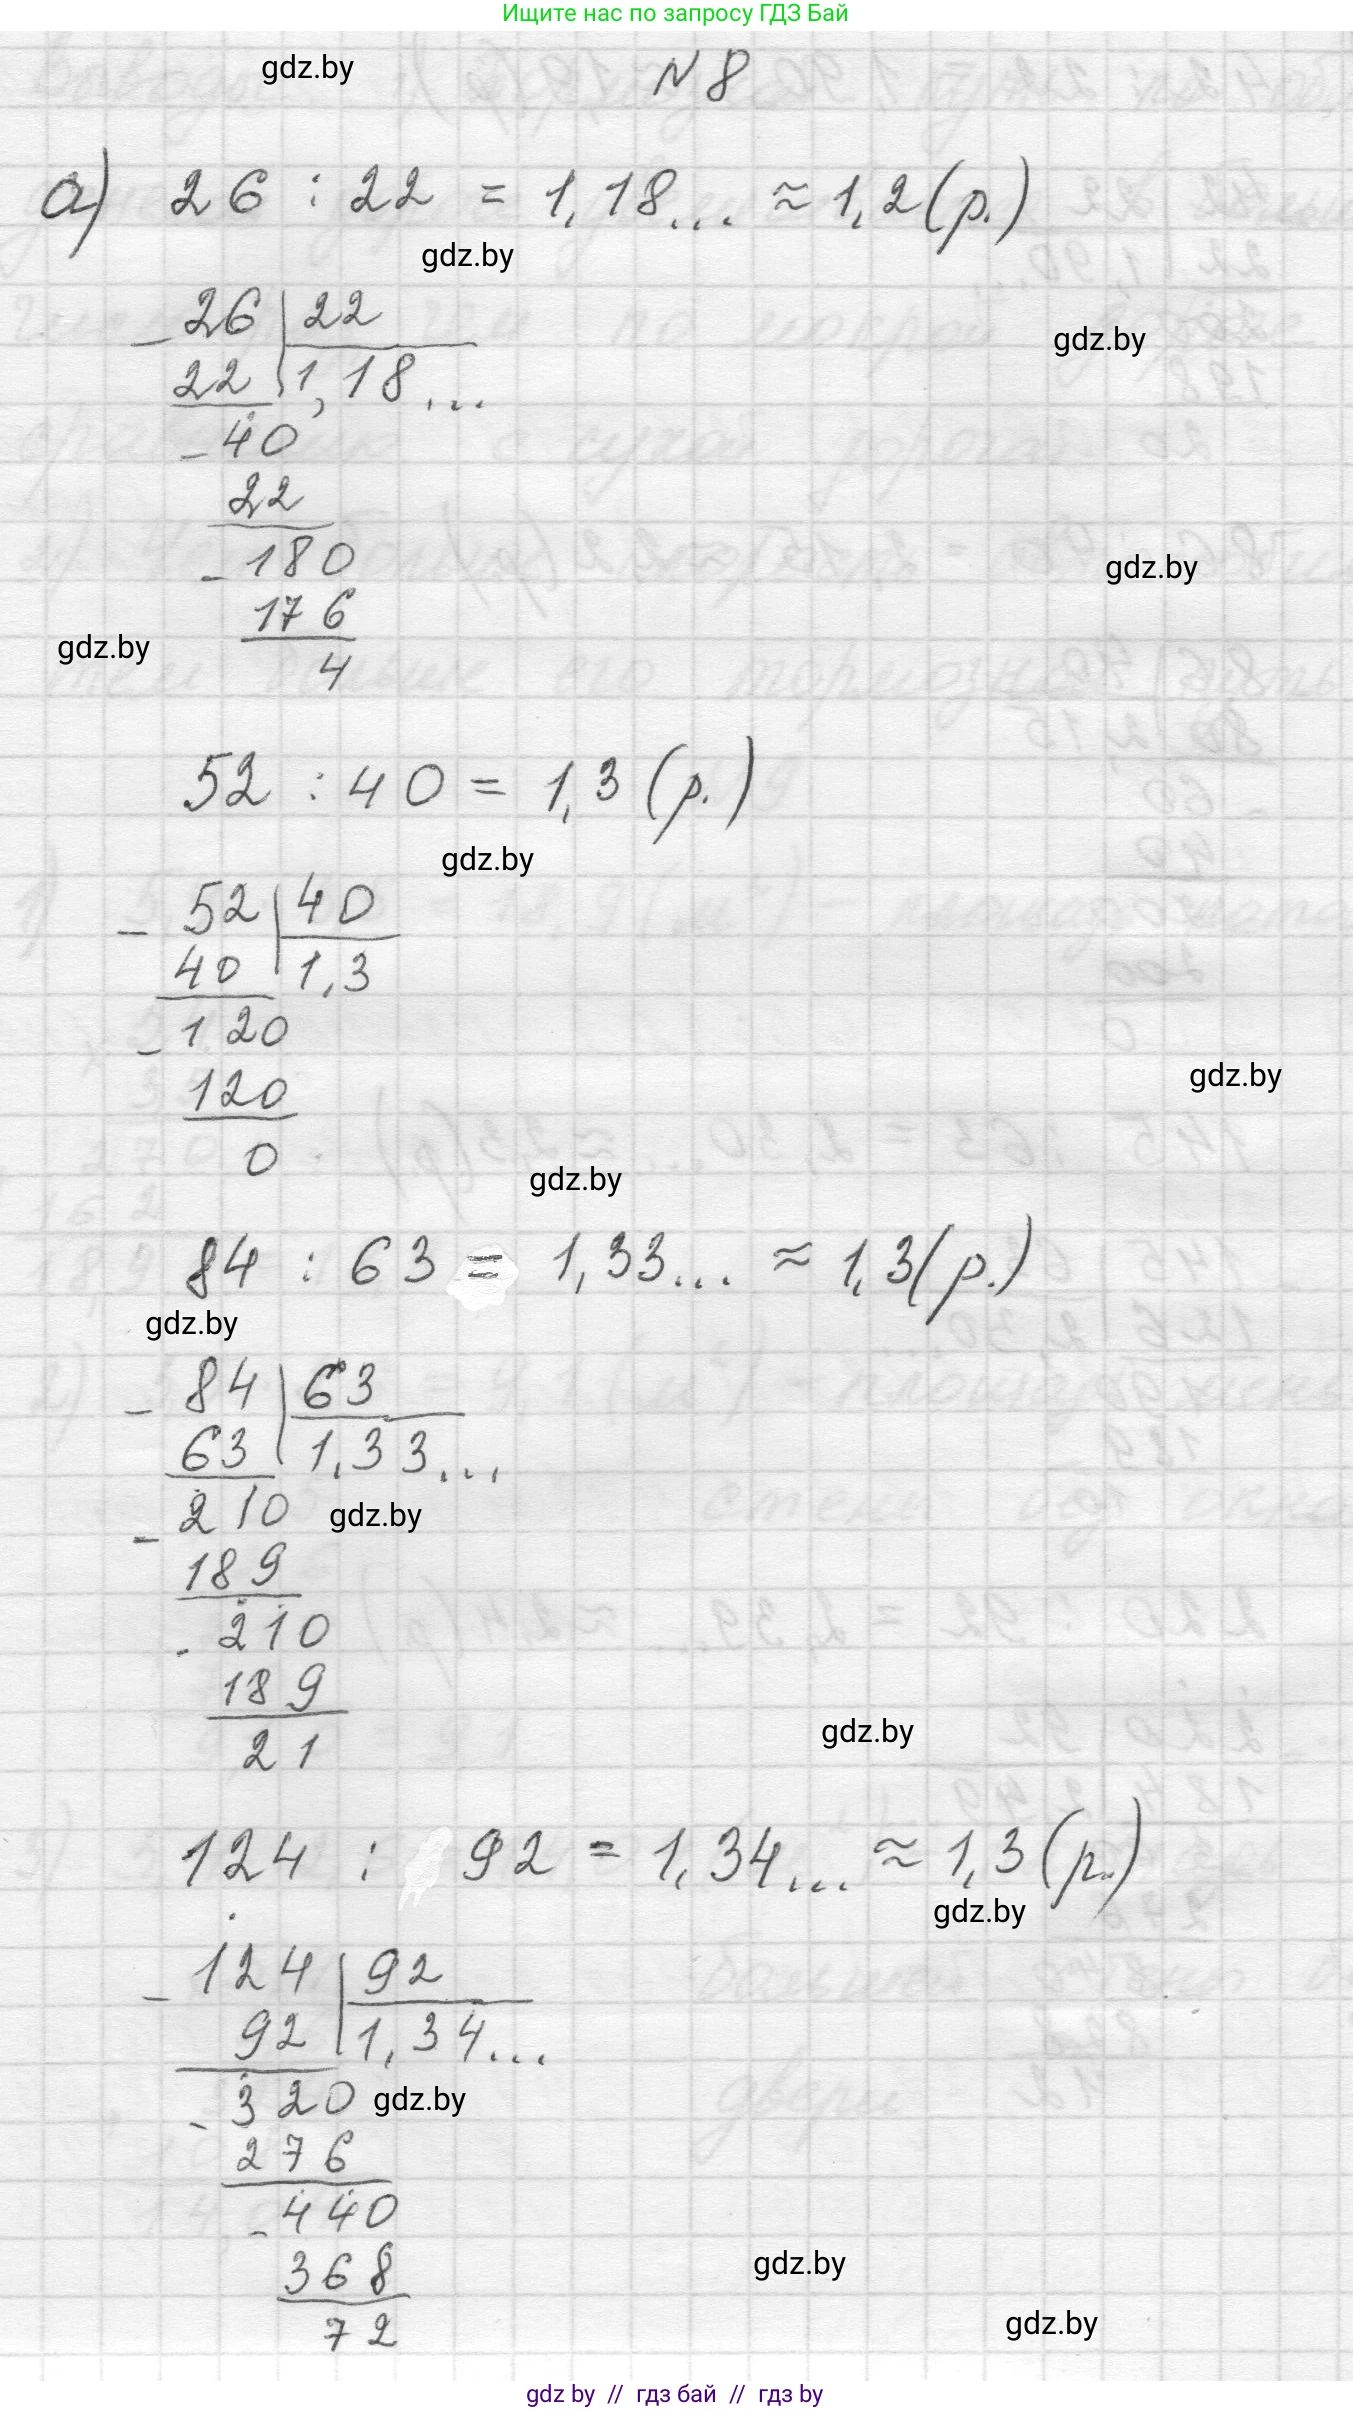 Ищите нас по запросу ГДЗ Бай
gdz.by
N 8
а) 26 : 22 = 1,18... ≈ 1,2 (р.)
gdz.by
- 26 | 22
22 | 1,18...
gdz.by
- 40
22
- 180
gdz.by
176
gdz.by
4
52 : 40 = 1,3 (р.)
gdz.by
- 52 | 40
40 | 1,3
- 120
gdz.by
120
0
gdz.by
84 : 63 = 1,33... ≈ 1,3 (р.)
gdz.by
- 84 | 63
63 | 1,33...
- 210
gdz.by
189
- 210
189
gdz.by
21
124 : 92 = 1,34... ≈ 1,3 (р.)
gdz.by
- 124 | 92
92 | 1,34...
- 320
gdz.by
276
- 440
gdz.by
368
gdz.by
72
gdz by // гдз бай // gdz by